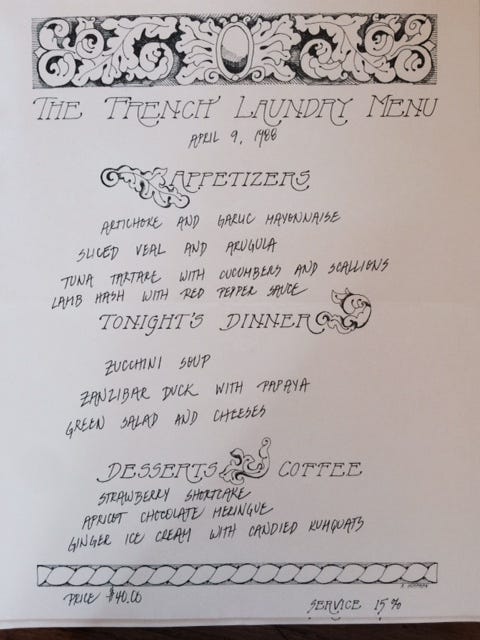 THE FRENCH LAUNDRY MENU
APRIL 9, 1988
APPETIZERS
ARTICHOKE AND GARLIC MAYONNAISE
SLICED VEAL AND ARUGULA
TUNA TARTARE WITH CUCUMBERS AND SCALLIONS
LAMB HASH WITH RED PEPPER SAUCE
TONIGHT'S DINNER
ZUCCHINI SOUP
ZANZIBAR DUCK WITH PAPAYA
GREEN SALAD AND CHEESES
DESSERTS COFFEE
STRAWBERRY SHORTCAKE
APRICOT CHOCOLATE MERINGUE
GINGER ICE CREAM WITH CANDIED KUMQUATS
PRICE $40.00
SERVICE 15%